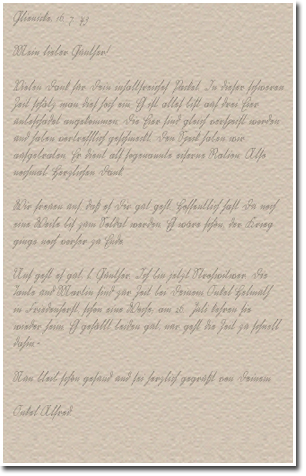 Glienicke, 16. 7. 43
Mein lieber Günther!
Vielen Dank für Dein inhaltsreiches Paket. In dieser schweren
Zeit schätzt man dies hoch ein. Es ist alles bis auf drei Eier
unbeschadet angekommen. Die Eier sind gleich verspeist worden
und haben vortrefflich geschmeckt. Den Speck haben wir
aufgehoben. Er dient als sogenannte eiserne Ration. Also
nochmal herzlichen Dank.
Wir freuen uns, daß es Dir gut geht. Hoffentlich hast Du noch
eine Weile bis zum Soldat werden. Es wäre schön, der Krieg
ginge noch vorher zu Ende.
Uns geht es gut, l. Günther. Ich bin jetzt Strohwitwer. Die
Tante und Martin sind zur Zeit bei Deinem Onkel Helmuth
in schon eine Woche, am 26. Juli kehren sie
wieder heim. Es gefällt beiden gut, nur geht die Zeit zu schnell
dahin.
Nun bleib schön gesund und sei herzlich gegrüßt von Deinem
Onkel Alfred.